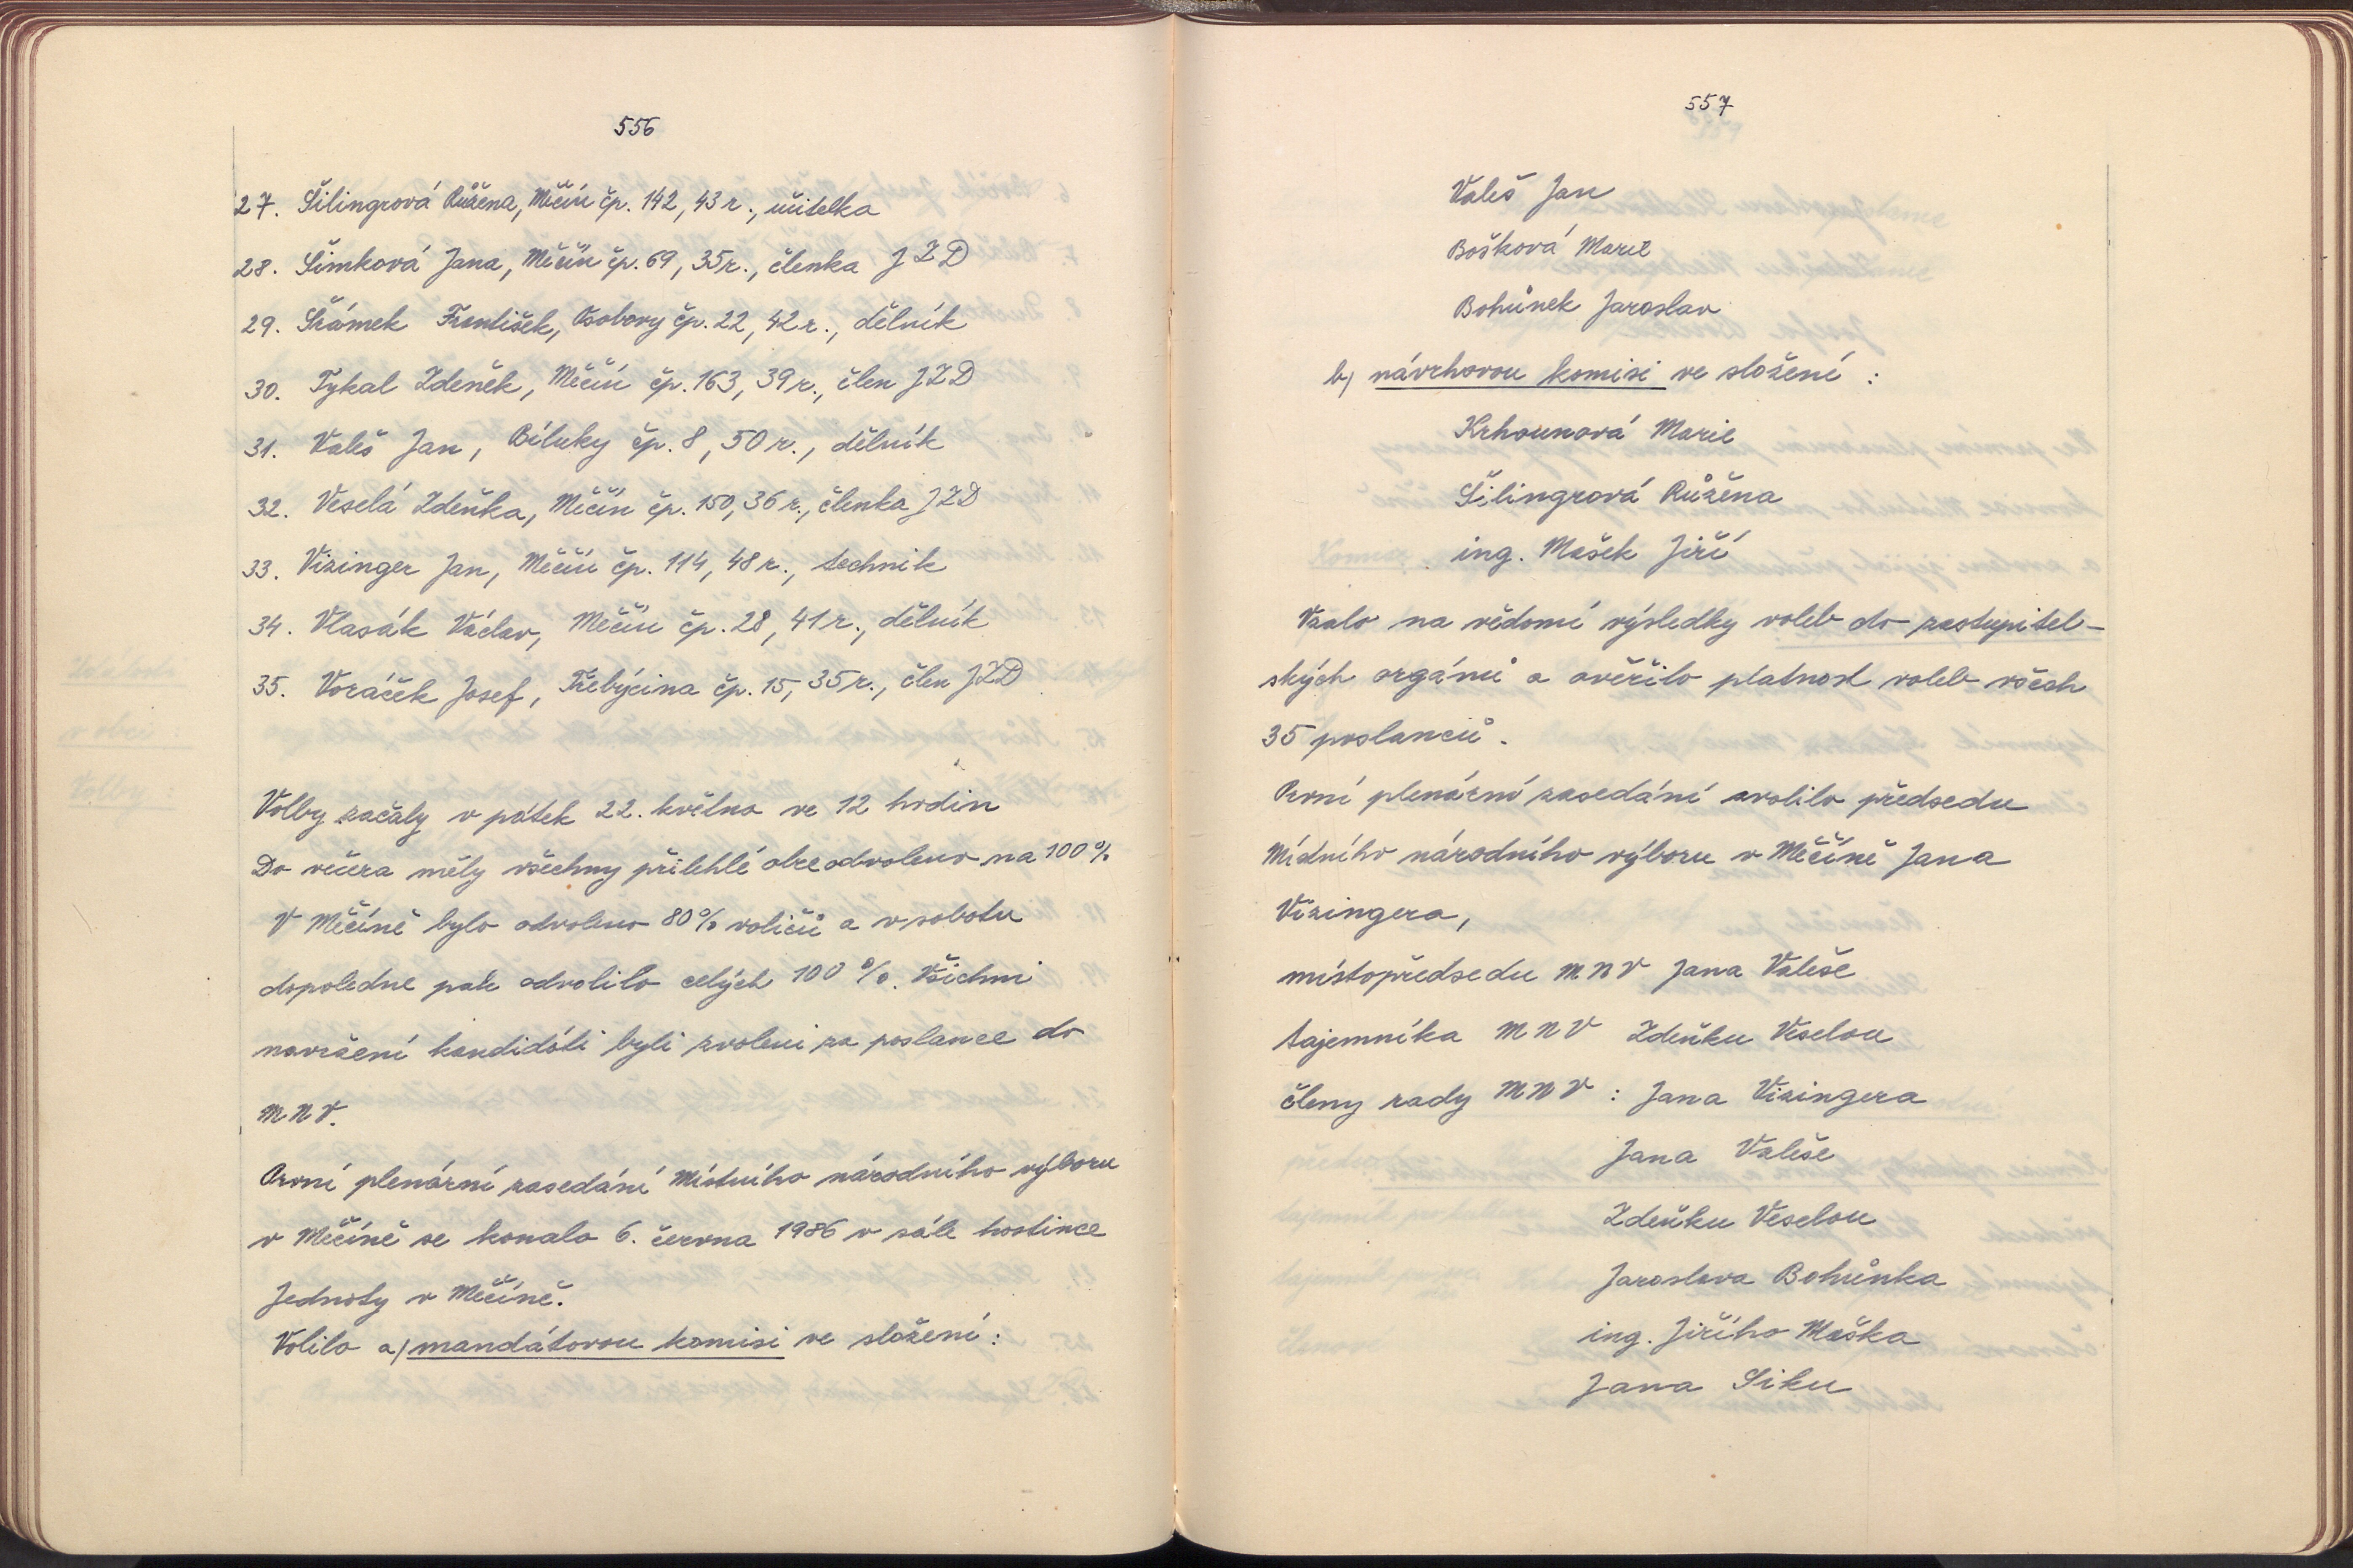 556
27. Šilingrová Růžena, Měčín čp. 142, 43 r., učitelka
28. Šimková Jana, Měčín čp. 69, 35 r., členka JZD
29. Šrámek František, Osobovy čp. 22, 42 r., dělník
30. Tykal Zdeněk, Měčín čp. 163, 39 r., člen JZD
31. Valeš Jan, Bíluky čp. 8, 50 r., dělník
32. Veselá Zdeňka, Měčín čp. 150, 36 r., členka JZD
33. Vizinger Jan, Měčín čp. 114, 48 r., technik
34. Vlasák Václav, Měčín čp. 28, 41 r., dělník
35. Voráček Josef, Třebýcina čp. 15, 35 r., člen JZD
Volby začaly v pátek 22. května ve 12 hodin
Do večera měly všechny přilehlé obce odvoleno na 100 %
V Měčíně bylo odvoleno 80 % voličů a v sobotu
dopoledne pak odvolilo celých 100 %. Všichni
navržení kandidáti byli zvoleni za poslance do
MNV.
První plenární zasedání Místního národního výboru
v Měčíně se konalo 6. června 1986 v sále hostince
Jednoty v Měčíně.
Volilo a) mandátovou komisi ve složení:
557
Valeš Jan
Bošková Marie
Bohůnek Jaroslav
b) návrhovou komisi ve složení :
Krhounová Marie
Šilingrová Růžěna
ing. Mašek Jiří
Vzalo na vědomí výsledky voleb do zastupitel-
ských orgánů a ověřilo platnost voleb všech
35 poslanců.
První plenární zasedání zvolilo předsedu
Místního národního výboru v Měčíně Jana
Vizingera,
místopředsedu MNV Jana Valeše
tajemníka MNV Zdeňku Veselou
členy rady MNV : Jana Vizingera
Jana Valeše
Zdeňku Veselou
Jaroslava Bohůnka
ing. Jiřího Maška
Jana Siku